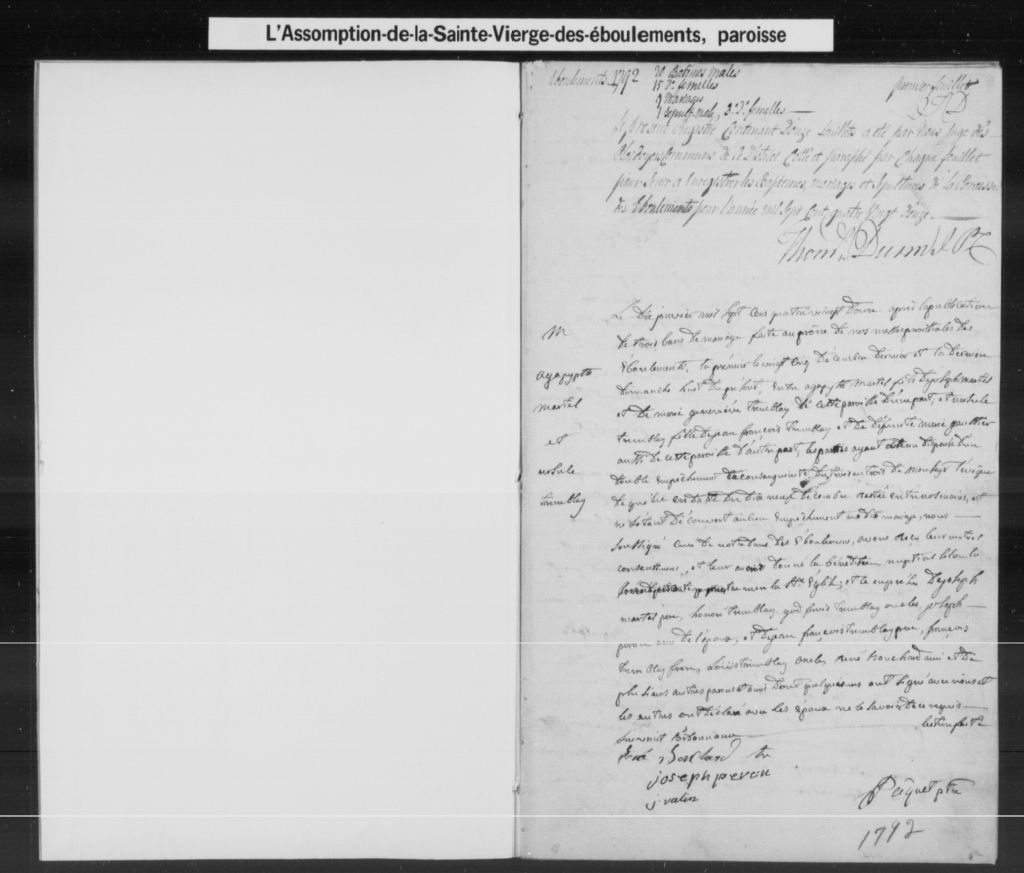 L'Assomption-de-la-Sainte-Vierge-des-éboulements, paroisse
Eboulements 1792
20 Batemes males
15 D.º femelles
9 Mariages
1 Sepult. male, 3 d.º femelles
premier feuillet
Le present Registre Contenant Douze feuillets a été par Nous Juge des
Plaidoyers Communs de ce District Cotté et paraphé par Chaque feuillet
pour Servir a Enregistrer les Baptemes, mariages et Sepultures de la Paroisse
des Eboulements pour l'année mil Sept Cent quatre Vingt Douze
M
agapythe
martel
et
tremblay
Le dix janvier mil sept cens quatre vingt douze après la publication
de trois bans de mariage faite au prône de nos messes paroissiales des
Eboulemens, la première le vingt cinq décembre dernier et la dernière
dimanche huit du présent, entre agapyth martel fils de joseph martel
et de marie geneviève tremblay de cette paroisse d'une part, et
tremblay fille de jean françois tremblay et de défunte marie gauthier
aussi de cette paroisse d'autre part, les parties ayant obtenu dispense d'un
double empêchement de consanguinité du trois au trois de monseigr l'évêque
de québec en datte du dix neuf décembre restée entre nos mains, et
ne s'étant découvert aucun empêchement au dit mariage, nous
soussigné curé de notre dame des Eboulemens, avons reçu leur mutuel
consentement, et leur avons donné la bénédiction nuptiale selon la
la Ste Eglise, et ce en présence de joseph
martel père, honoré tremblay, godfroie tremblay oncles, joseph
peron ami de l'époux, et de jean françois tremblay père, françois
tremblay frère, Louis tremblay oncle, rené Bouchard ami et de
plusieurs autres parens et amis dont quelques uns ont signé avec nous et
les autres ont déclaré avec les époux ne le savoir de ce requis
suivant l'ordonnance
lecture faite
joseph peron
j. valin
Pâquet ptre
1792